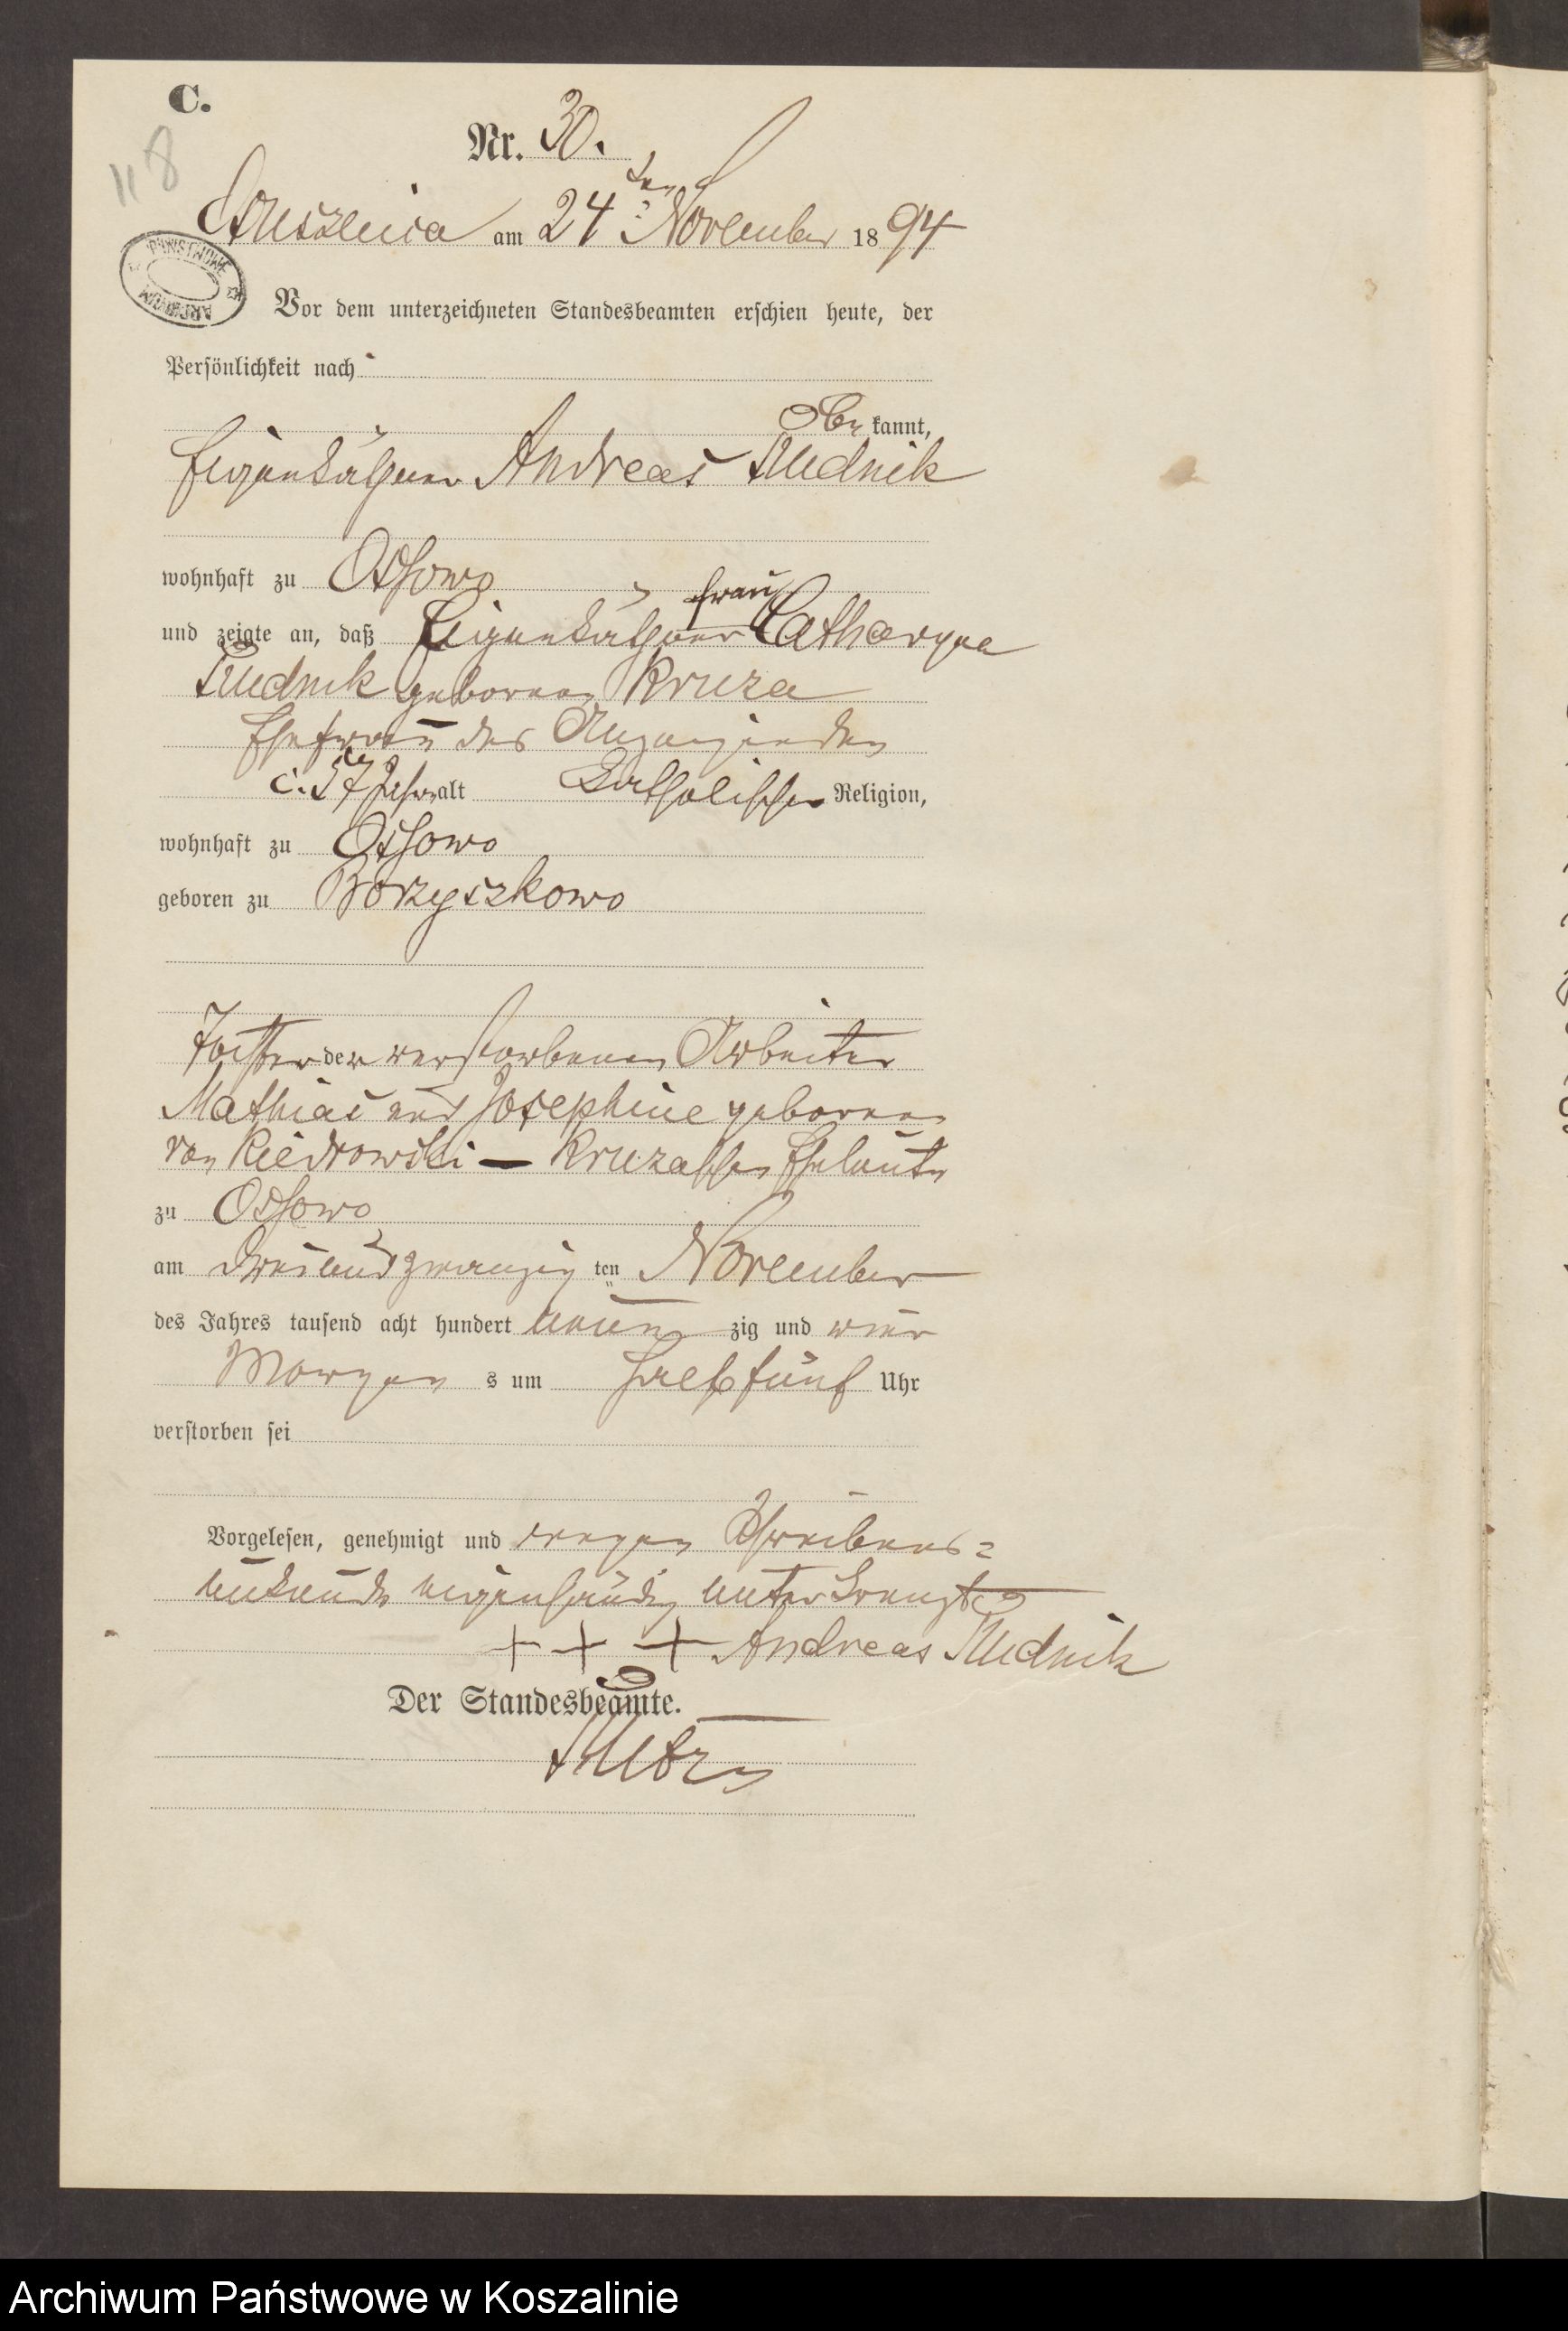 C.
118
Nr. 30.
Kruszenia am 24ten November 1894
PAŃSTWOWE ARCHIWUM
Vor dem unterzeichneten Standesbeamten erschien heute, der
Persönlichkeit nach
be kannt,
Eigenkäthner Andreas Rudnik
wohnhaft zu Ossowo
und zeigte an, daß Eigenkäthner frau Catharyna
Rudnik geborene Kruza
Ehefrau des Anzeigenden
c. 57 Jahr alt Katholischer Religion,
wohnhaft zu Ossowo
geboren zu Borzyszkowo
Tochter der verstorbenen Arbeiter
Mathias und Josephine geborene
von Kiedrowski – Kruzaschen Eheleute
zu Ossowo
am dreiundzwanzig ten November
des Jahres tausend acht hundert neun zig und vier
Morgen s um halb fünf Uhr
verstorben sei
Vorgelesen, genehmigt und wegen Schreibens-
unkunde eigenhändig unterkreuzt
+ + + Andreas Rudnik
Der Standesbeamte.
Archiwum Państwowe w Koszalinie